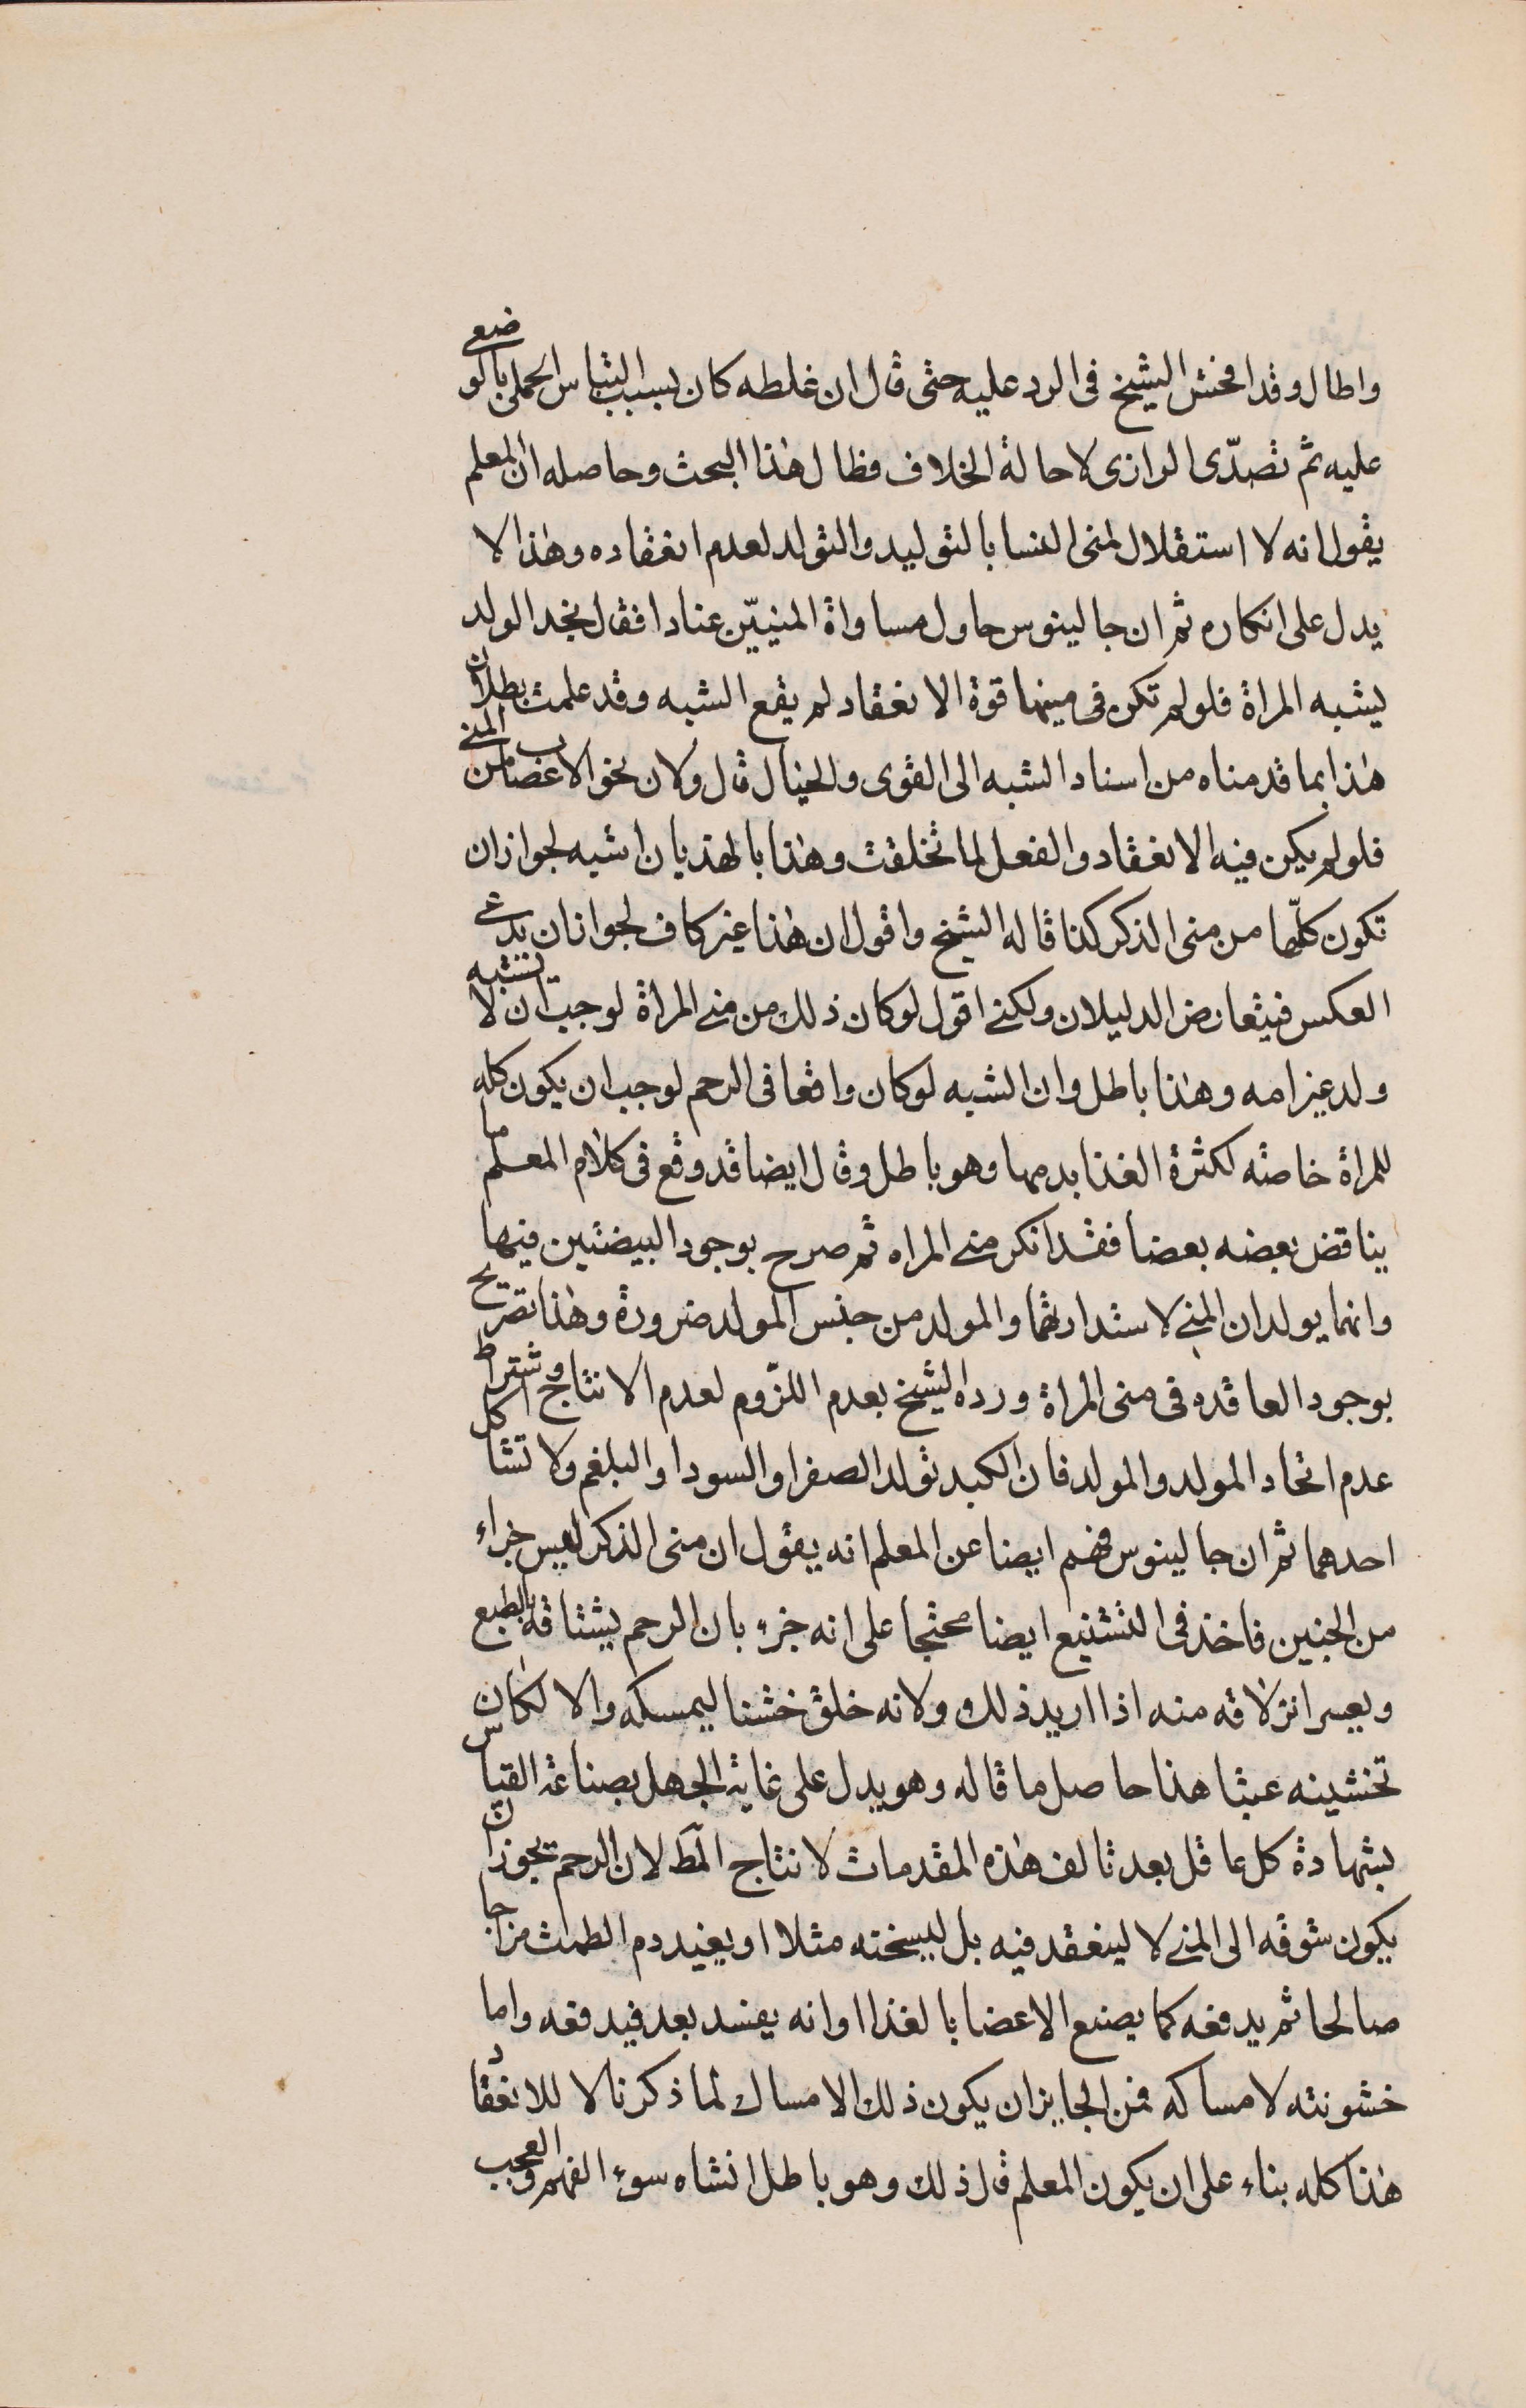 واطال وقد افحش الشيخ فى الرد عليه حتى قال ان غلطه كان بسبب التباس الحملى بالوضعى
عليه ثم تصدّى الرازى لاحالة الخلاف فطال هذا البحث وحاصله ان المعلم
يقول انه لا استقلال لمنى النسا بالتوليد والتولد لعدم انعقاده وهذا لا
يدل على انكاره ثم ان جالينوس حاول مساواة المنيـيّن عنادا فقال نجد الولد
يشبه المراة فلو لم تكن فى منيها قوة الانعقاد لم يقع الشبه وقد علمت بطلان
هذا بما قدمناه من اسناد الشبه الى القوى والخيال قال ولان نحو الاعصاب من المنى
فلو لم يكن فيه الانعقاد والفعل لما تخلقت وهذا بالهذيان اشبه لجواز ان
تكون كلّها من منى الذكر كذا قاله الشيخ واقول ان هذا غير كاف لجواز ان يدعى
العكس فيتعارض الدليلان ولكنى اقول لو كان ذلك من منى المراة لوجب ان لا يشبه
ولد غير امه وهذا باطل وان الشبه لو كان واقعا فى الرحم لوجب ان يكون كله
للمراة خاصة لكثرة الغذا بدمها وهو باطل وقال ايضا قد وقع فى كلام المعلم ما
يناقض بعضه بعضا فقد انكر منى المراه ثم صرح بوجود البيضتين فيها
وانهما يولدان المنى لاستدارتهما والمولد من جنس المولد ضرورة وهذا تصريح
بوجود العاقده فى منى المراة ورده الشيخ بعدم اللزّوم لعدم الانتاج واشتراط
عدم اتحاد المولد والمولد فان الكبد تولد الصفرا والسودا والبلغم ولا تشاكل
احدهما ثم ان جالينوس فهم ايضا عن المعلم انه يقول ان منى الذكر ليس جزاء
من الجنين فاخذ فى التشنيع ايضا محتجا على انه جزء بان الرحم يشتاقه بالطبع
ويعسر انزلاقه منه اذا اريد ذلك ولانه خلق خشنا ليمسكه والا لكان
تخشينه عبثا هذا حاصل ما قاله وهو يدل على غاية الجهل بصناعة القياس
بشهادة كل عاقل بعد تالف هذه المقدمات لانتاج المط لان الرحم يجوز ان
يكون شوقه الى المنى لا لينعقد فيه بل ليسخنه مثلا او يفيد دم الطمث مزاجا
صالحا ثم يدفعه كما يصنع الاعضا بالغذا او انه يفسد بعد فيدفعه واما
خشونته لامساكه فمن الجايز ان يكون ذلك الامساك لما ذكرنا لا للانعقاد
هذا كله بناء على ان يكون المعلم قال ذلك وهو باطل انشاه سوء الفهم والعجب